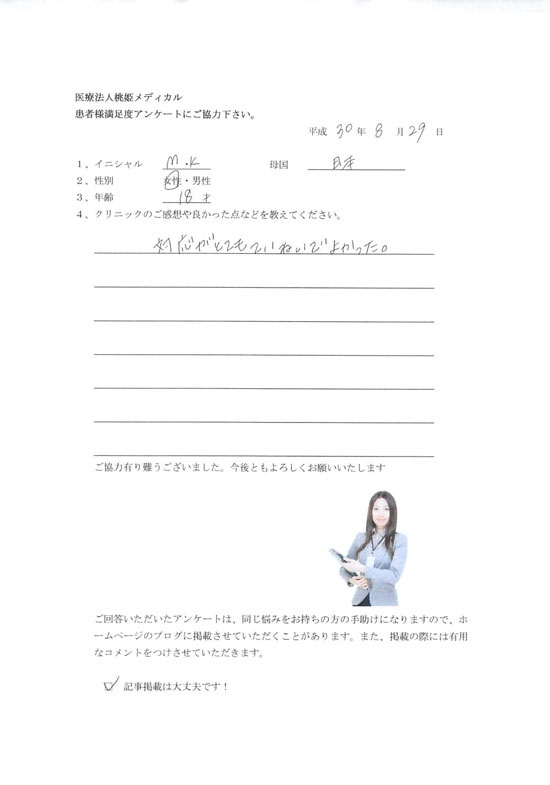 医療法人桃姫メディカル
患者様満足度アンケートにご協力下さい。
平成 30 年 8 月 29 日
1、イニシャル M.K 母国 日本
2、性別 女性・男性
3、年齢 18 才
4、クリニックのご感想や良かった点などを教えてください。
対応がとてもていねいでよかった。
ご協力有り難うございました。今後ともよろしくお願いいたします
ご回答いただいたアンケートは、同じ悩みをお持ちの方の手助けになりますので、ホ
ームページのブログに掲載させていただくことがあります。また、掲載の際には有用
なコメントをつけさせていただきます。
記事掲載は大丈夫です！